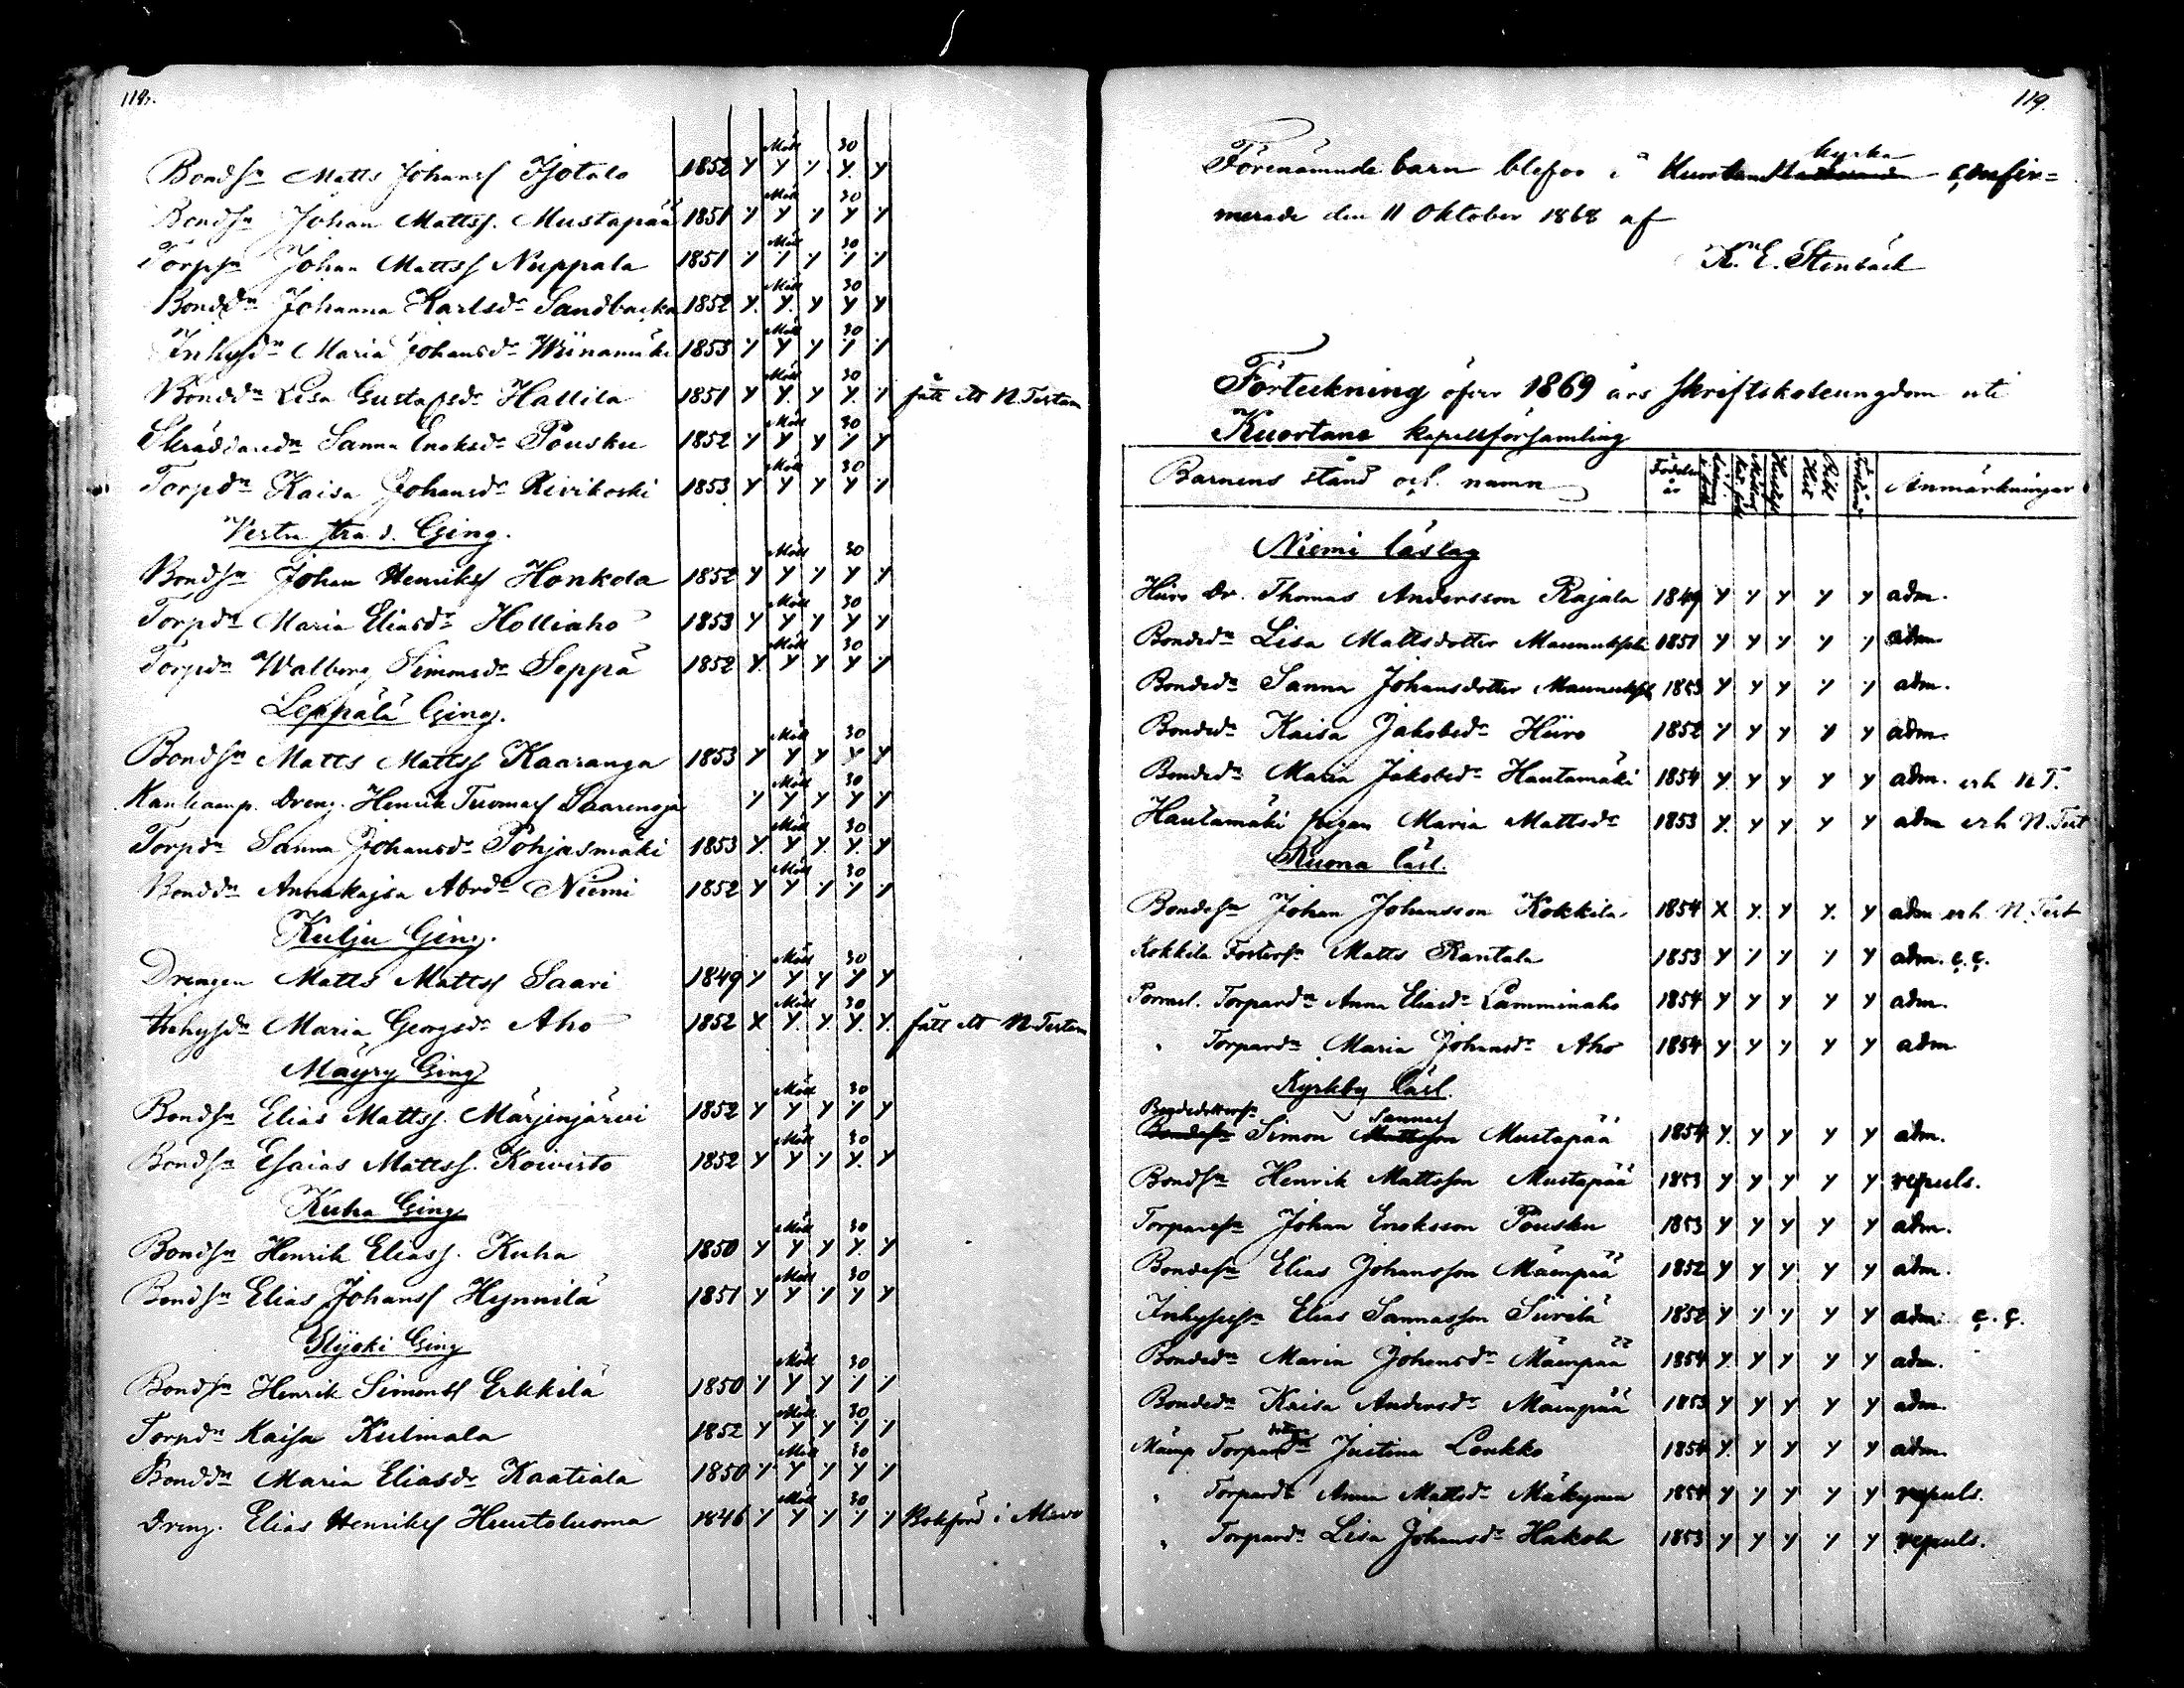 118.
Bondsn Matts Johanss Isotalo 1852 y y y y y Mött 30
Bondsn Johan Mattss. Mustapää 1851 y y y y y Mött 30
Torpsn Johan Mattss Nuppala 1851 y y y y y Mött 30
Bonddn Johanna Karlsdr Sandbacka 1852 y. y. y y y Mött 30
Inhysdn Maria Johansdr 1853 y y y y y Mött 30
Bonddn Lisa Gustafsdr Hallila 1851 y y. y y. y Mött 30 fått ett N. Testam
Skräddaredn Sanna Enoksdr Pousku 1852 y y y y y Mött 30
Torpdn Kaisa Johansdr Kivikoski 1853 y y y y y Mött 30
Vestra stra d. Ging.
Bondsn Johan Henrikss Honkola 1852 y y y y y Mött 30
Torpdn Maria Eliasdr Holliaho 1853 y y y y y Mött 30
Torpdn Walborg Simonsdr Seppä 1852 y. y y y y Mött 30
Leppälä Ging.
Bondsn Matts Mattss Kaaranga 1853 y y y y y Mött 30
Dreng. Henrik Tuomass y y y y y Mött 30
Torpdn Sanna Johansdr Pohjasmäki 1853 y. y y. y. y Mött 30
Bonddn Annakajsa Abrdr Niemi 1852 y y y y y Mött 30
Kulju Ging.
Drengen Matts Mattss Saari 1849 y y y y y Mött 30
Inhysdn Maria Georgsdr Aho 1852 x y. y. y. y. Mött 30 fått ett N. Testam
Mäyry Ging
Bondsn Elias Mattss. Märjenjärvi 1852 y y y y y Mött 30
Bondsn Esaias Mattss. Koivisto 1852 y y y y. y Mött 30
Kuha Ging
Bondsn Henrik Eliass. Kuha 1850 y y y y. y Mött 30
Bondsn Elias Johanss Hynnilä 1851 y y y y y Mött 30
Ylijoki Ging
Bondsn Henrik Simonss Erkkilä 1850 y y y y y Mött 30
Torpdn Kaisa Kulmala 1852 y y y y y Mött 30
Bonddn Maria Eliasdr Kaatiala 1850 y y y y y Mött 30
Dreng. Elias Henrikss Huutoluoma 1846 y y y y y Mött 30 Bokförd i Alavo
119.
Förenämnde barn blefvo i Kuortane kyrka confir=
merade den 11 Oktober 1868 af
K. E. Stenbäck
Förteckning öfver 1869 års skriftskoleungdom uti
Kuortane kapellförsamling
Barnens stånd och namn Födelse år Anmärkningar
Niemi läslag
Hiiro Dr. Thomas Andersson Rajala 1849 y y y y y adm.
Bondedn Lisa Mattsdotter 1851 y y y y y adm
Bondedn Sanna Johansdotter 1853 y y y y y adm.
Bondedn Kaisa Jakobsdr Hiiro 1852 y y y y y adm.
Bondedn Maria Jakobsdr Hautamäki 1854 y. y y y y adm. erh N T.
Hautamäki pigan Maria Mattsdr 1853 y. y y y y adm erh N. Test
Ruona läsl.
Bondesn Johan Johansson Kokkila 1854 x y. y y. y adm erh. N. Test
Kokkila Fostersn Matts Rantala 1853 y y y y y adm. c. c.
Torparedn Anna Eliasdr Lamminaho 1854 y y y y y adm.
" Torparedn Maria Johansdr Aho 1854 y y y y y adm
Kyrkby läsl.
Bondedottersn Simon Sannass Mustapää 1854 y. y y y y adm.
Bondsn Henrik Mattsson Mustapää 1853 y y y y y repuls.
Torparesn Johan Enoksson Pousku 1853 y y y y y adm.
Bondesn Elias Johansson Mäenpää 1852 y y y y y adm.
Inhysesn Elias Sannasson Siirilä 1852 y y y y y adm. c. c.
Bondedn Maria Johansdr Mäenpää 1854 y. y y y y adm.
Bondedn Kaisa Andersdr Mäenpää 1853 y y y y y adm.
Mäenp Torpare Justina Loukko 1854 y. y y y y adm.
" Torpardn Anna Mattsdr Mäkynen 1854 y y y y y repuls.
" Torpardn Lisa Johansdr Hakola 1853 y y y y y repuls.